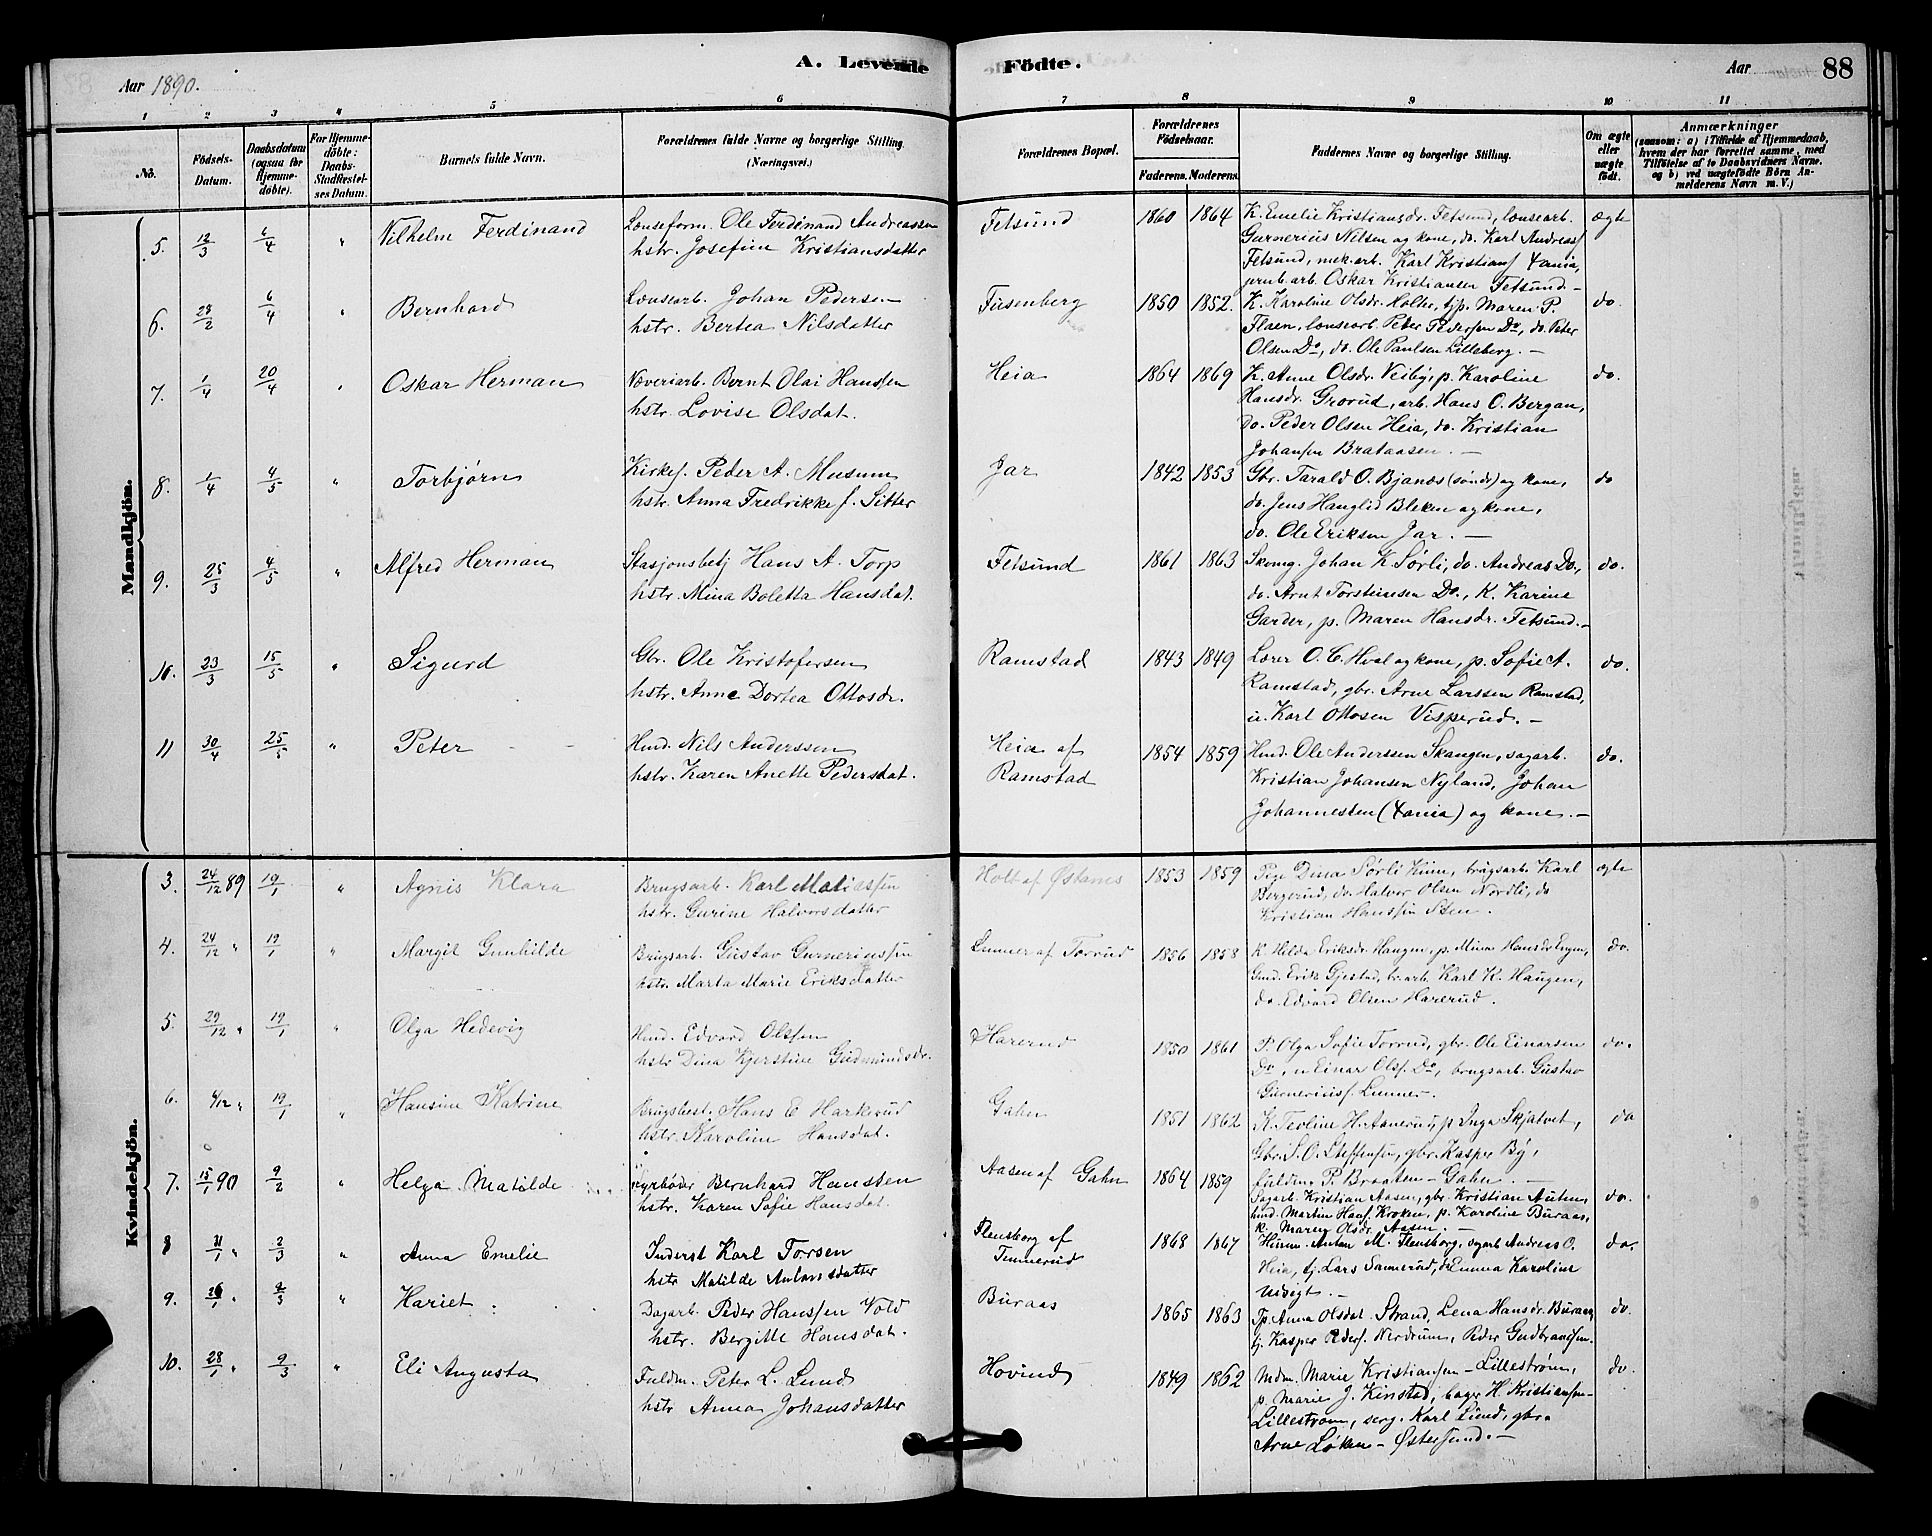 A. Levende Födte.
Aar 1890.
Aar 88
1 2 3 4 5 6 7 8 9 10 11
No.
Födsels-Datum.
Daabsdatum (ogsaa for Hjemmedöbte).
For Hjemmedöbte: Daabs-Stadfæstelses Datum.
Barnets fulde Navn.
Forældrenes fulde Navne og borgerlige Stilling. (Næringsvei.)
Forældrenes Bopæl.
Forældrenes Födselsaar.
Faderens. Moderens.
Faddernes Navne og borgerlige Stilling.
Om ægte eller uægte födt.
Anmærkninger
(saasom: a) i Tilfælde af Hjemmedaab, hvem der har forrettet samme, med Tilföielse af to Daabsvidners Navne, og b) ved uægtefödte Börn Anmelderens Navn m. V.)
Mandkjön.
5. 12/3 6/4 " Vilhelm Ferdinand
Lenseform. Ole Ferdinand Andreassen
hstr. Josefine Kristiansdatter
Fetsund 1860 1864
K. Emelie Kristiansdr. Fetsund, lensearb.
Gurnerius Nilsen og kone, do. Karl Andreass
Fetsund, mek.arb. Karl Kristians Xania,
arb. Oskar Kristiansen Fetsund –
ægte
6. 28/2 6/4 " Bernhard
Lensearb. Johan Pedersen
hstr. Bertea Nilsdatter
Tusenberg 1850 1852.
K. Karoline Olsdr. Holter, tjp. Maren P.
Flaen, lensearb. Peter Pedersen Do, do. Peter
Olsen Do, do. Ole Paulsen Lilleberg. –
do.
7. 1/4 20/4 " Oskar Herman
Væveriarb. Bernt Olai Hanssen
hstr. Lovise Olsdat.
Heia 1864 1869
K. Anne Olsdr. Veiby, p. Karoline
Hansdr. Grorud, arb. Hans O. Bergan,
do. Peder Olsen Heia, do. Kristian
Johansen Brataasen. –
do.
8. 1/4 4/5 " Torbjørn
Kirkes. Peder A. Musum
hstr. Anna Fredrikke f. Sitter
Jar 1842 1853
Gbr. Tarald O. Bjanes (søndr) og kone,
do. Jens Hanglid Bleken og kone,
do. Ole Eriksen Jar. –
do
9. 25/3 4/5 " Alfred Herman
Stasjonsbetj Hans A. Torp
hstr. Mina Boletta Hansdat.
Fetsund 1861 1863
Skomg. Johan K. Sørli, do. Andreas Do.,
do. Arnt Torsteinsen Do., K. Karine
Garder, p. Maren Hansdr. Fetsund. –
do.
10. 23/3 15/5 " Sigurd
Gbr. Ole Kristofersen
hstr. Anne Dortea Ottosdr.
Ramstad 1843 1849
Lærer O. C. Hval og kone, p. Sofie A.
Ramstad, gbr. Arne Larssen Ramstad,
u. Karl Ottosen Visperud. –
do.
11 30/4 25/5 " Peter
Hmd. Nils Anderssen
hstr. Karen Anette Pedersdat.
Heia af
Ramstad
1854 1859
Hmd. Ole Anderssen Skangen, sagarb.
Kristian Johansen Nyland, Johan
Johannessen (Xania) og kone. –
do.
Kvindekjön.
3. 24/12 89 19/1 " Agnis Klara
Brugsarb. Karl Matiassen
hstr. Gurine Halvorsdatter
Holt af Østanes 1853 1859
Pige Dina Sørli, brugsarb. Karl
Bergerud, do. Halvor Olsen Nordli, do
Kristian Hanssen Sten.
ægte
4. 24/12 " 19/1 " Margit Gunhilde
Brugsarb. Gustav Gurneriussen
hstr. Marta Marie Eriksdatter
Lunner af Torrud 1856 1858
K. Helda Eriksdr. Haugen, p. Mina Hansdr Engen,
Gmd. Erik Gjestad, br.arb. Karl K. Haugen,
do. Edvard Olsen Harerud.
do.
5. 29/12 " 19/1 " Olga Hedevig
Hmd. Edvard Olssen
hstr Dina Kjerstine Gudmundsdr.
Harerud 1850 1861
P. Olga Sofie Torrud, gbr. Ole Einarsen
Do, u Einar Olss. Do, brugsarb. Gustav
Gurneriuss. Lunner. –
do.
6. 4/12 " 19/1 " Hansine Katrine
Brugsbest. Hans E Harkerud
hstr. Karoline Hansdat.
Gahn 1851 1862
K. Teoline H. Aanerud, p Inga Skjatvet,
Gbr. S. O. Steffensen, gbr. Kasper By,
fuldm. P. Braaten – Gahn. –
do
7. 15/1 90 9/2 " Helga Matilde
Fyrbøder Bernhard Hanssen
hstr. Karen Sofie Hansdat.
Aasen af Gahn 1864 1859
Sagarb. Kristian Aasen, gbr. Kristian Auten,
hmd. Martin Hans. Kroken, p. Karoline Buraas,
K. Maren Olsdr. Aasen. –
do.
8 31/1 " 2/3 " Anna Emelie
Inderst Karl Torsen
hstr Matilde Antonsdatter
Flensborg af
Tennerud
1868 1867
Husm. Anton M. Flensborg, sagarb Andreas O.
Heia, tj. Lars Sannerud, Emma Karoline
Udsigt. –
do.
9. 26/1 " 2/3 " Hariet
Dagarb. Peder Hanssen Vold
hstr. Bergitte Hansdat.
Buraas 1865 1863
Tp. Anna Olsdat Strand, Lena Hansdr. Buraas,
tj. Kasper Peders. Nerdrum, Peder Gudbrandsen.
do.
10. 28/1 " 9/3 " Eli Augusta
Fuldm. Peter L. Lund
hstr Anna Johansdatter
Hovind 1849 1862
Mdm. Marie Kristiansen – Lillestrøm,
p. Marie J. Kinstad, bager H. Kristiansen –
Lillestrøm, serg. Karl Lund, gbr.
Arne Løken – Østersund. –
do.